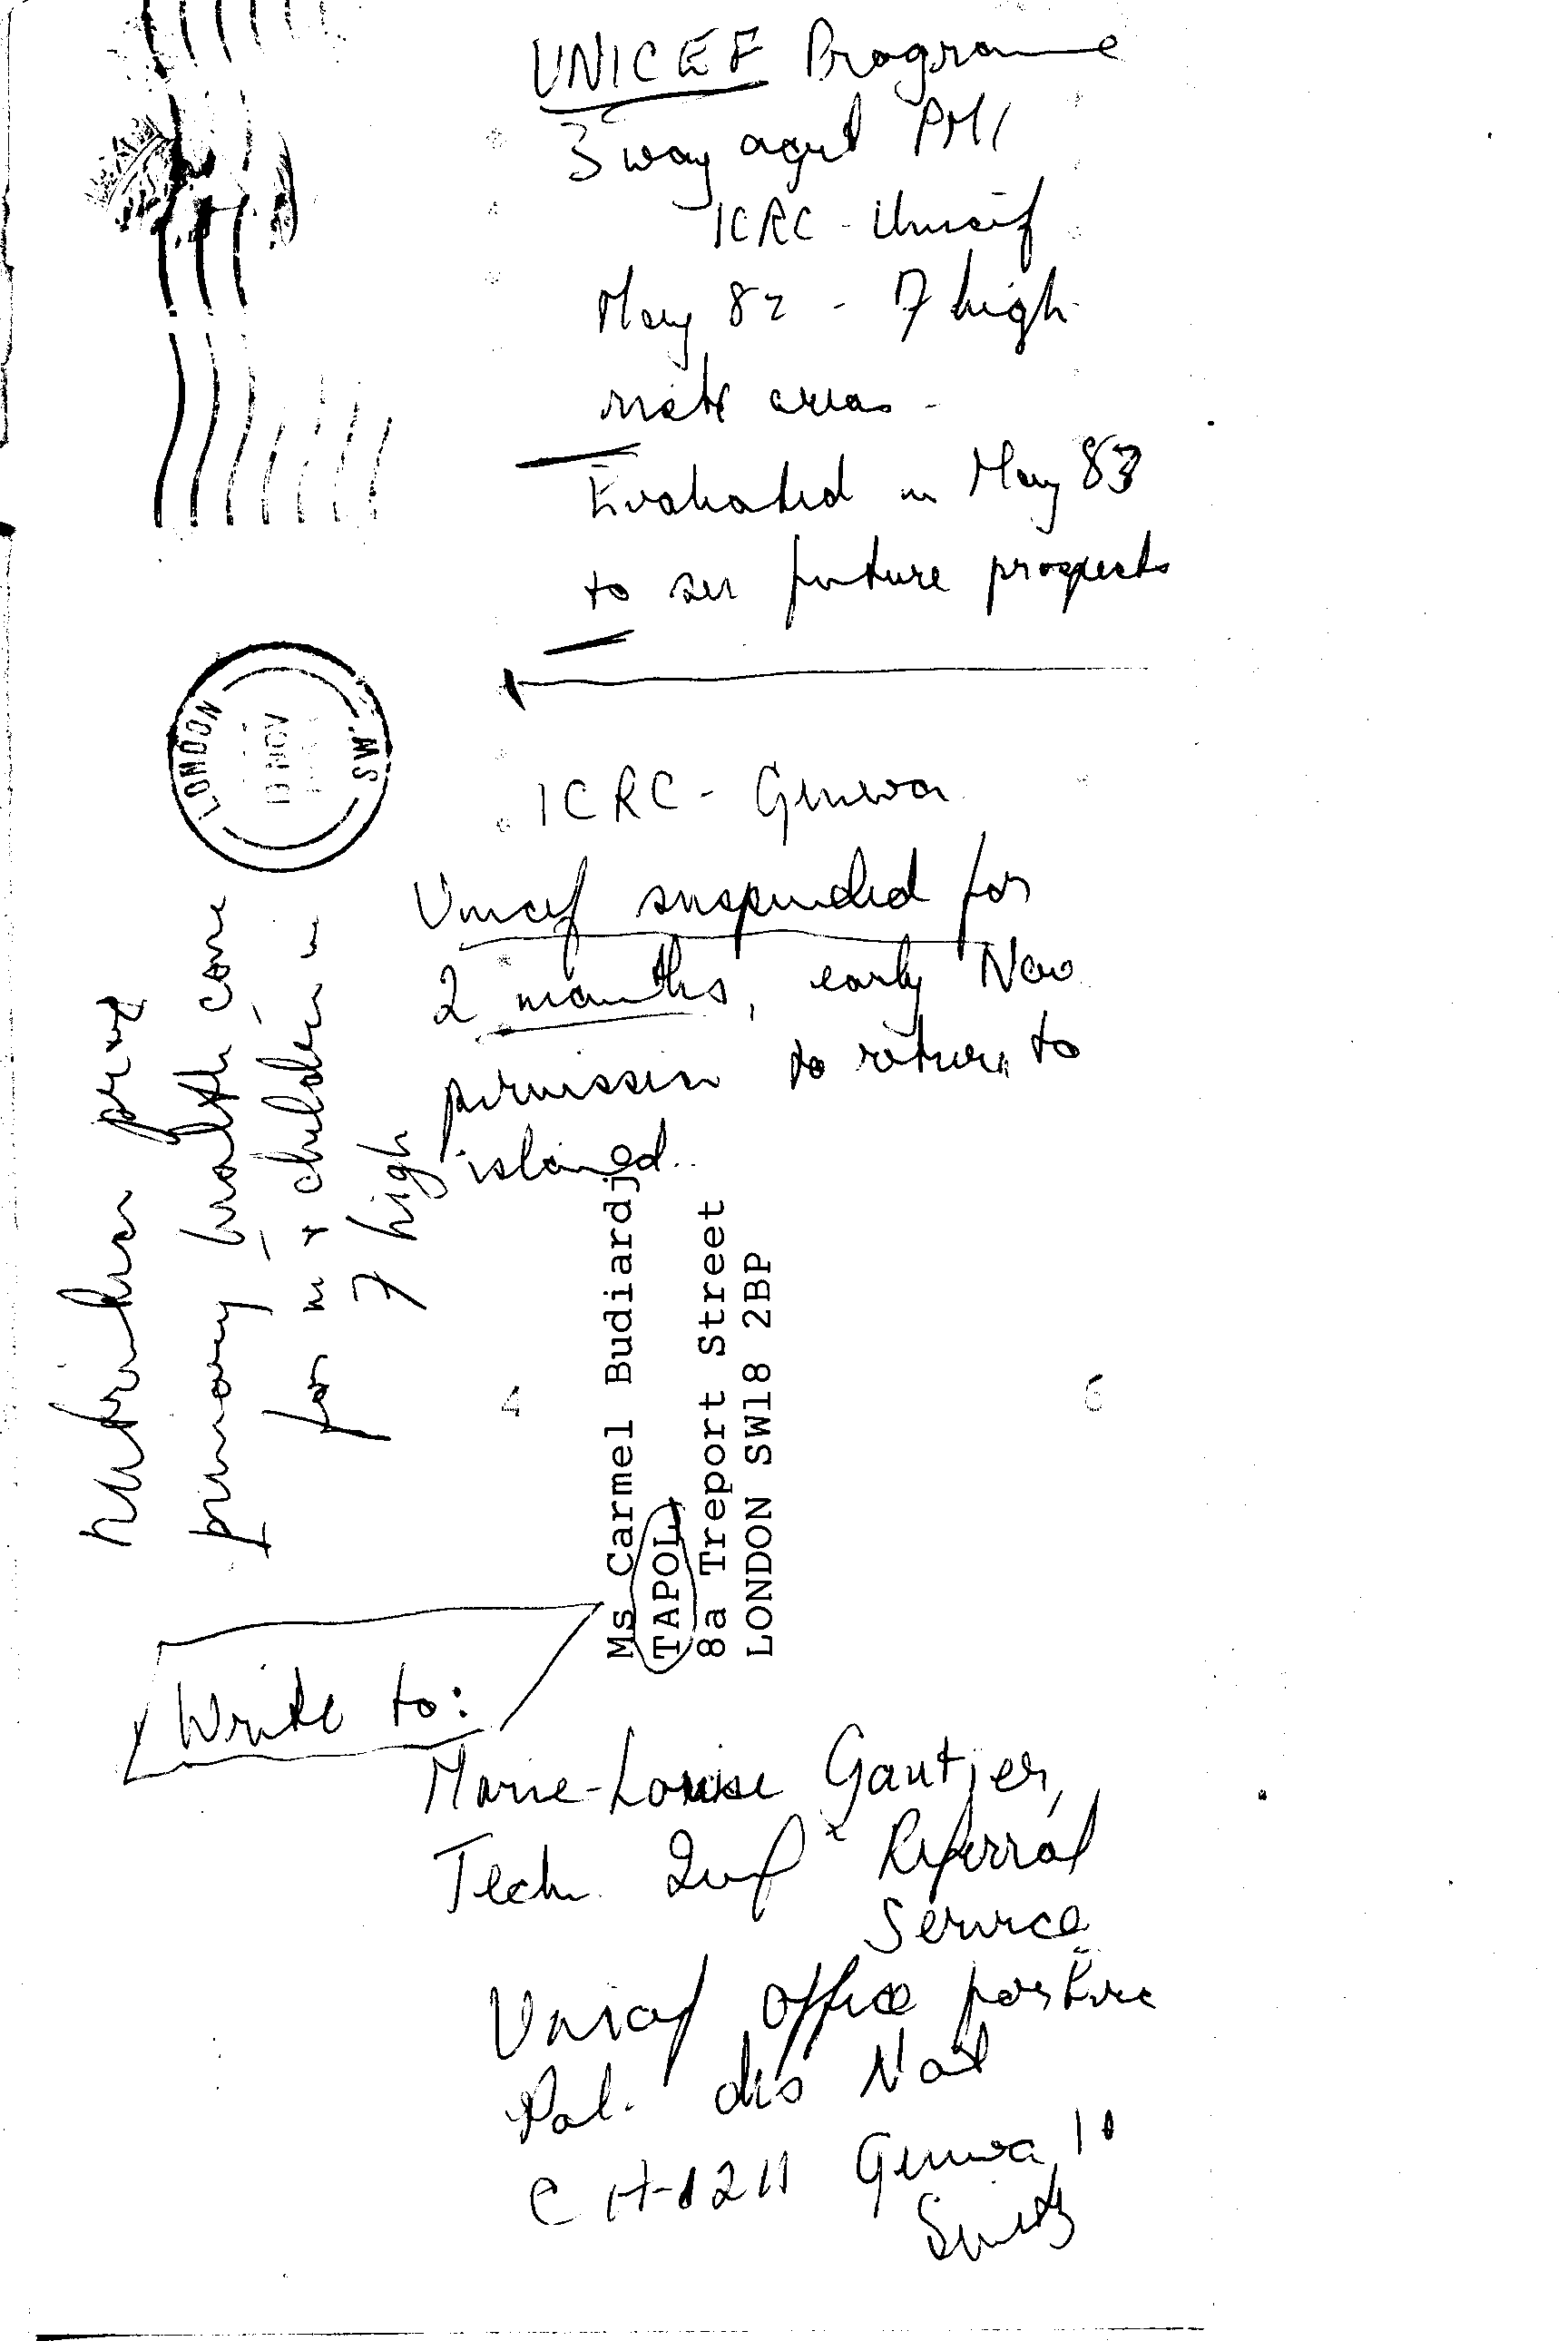 UNICEF Programme
3 way agmt PMI
ICRC - Unicef
May 82 - 7 high
risk areas -
Evaluated in May 83
to see future prospects
LONDON S.W.
NOV
ICRC - Geneva
Unicef suspended for
2 months, early Nov
permission to return to
island..
Nutrition prog
primary health care
for m + children in
7 high
Ms Carmel Budiardjo
TAPOL
8a Treport Street
LONDON SW18 2BP
4
6
Write to:
Marie-Louise Gautier,
Tech. Inf & Referral
Service
Unicef Office for Europe
Pal. des Nat
CH-1211 Geneva 10
Switz